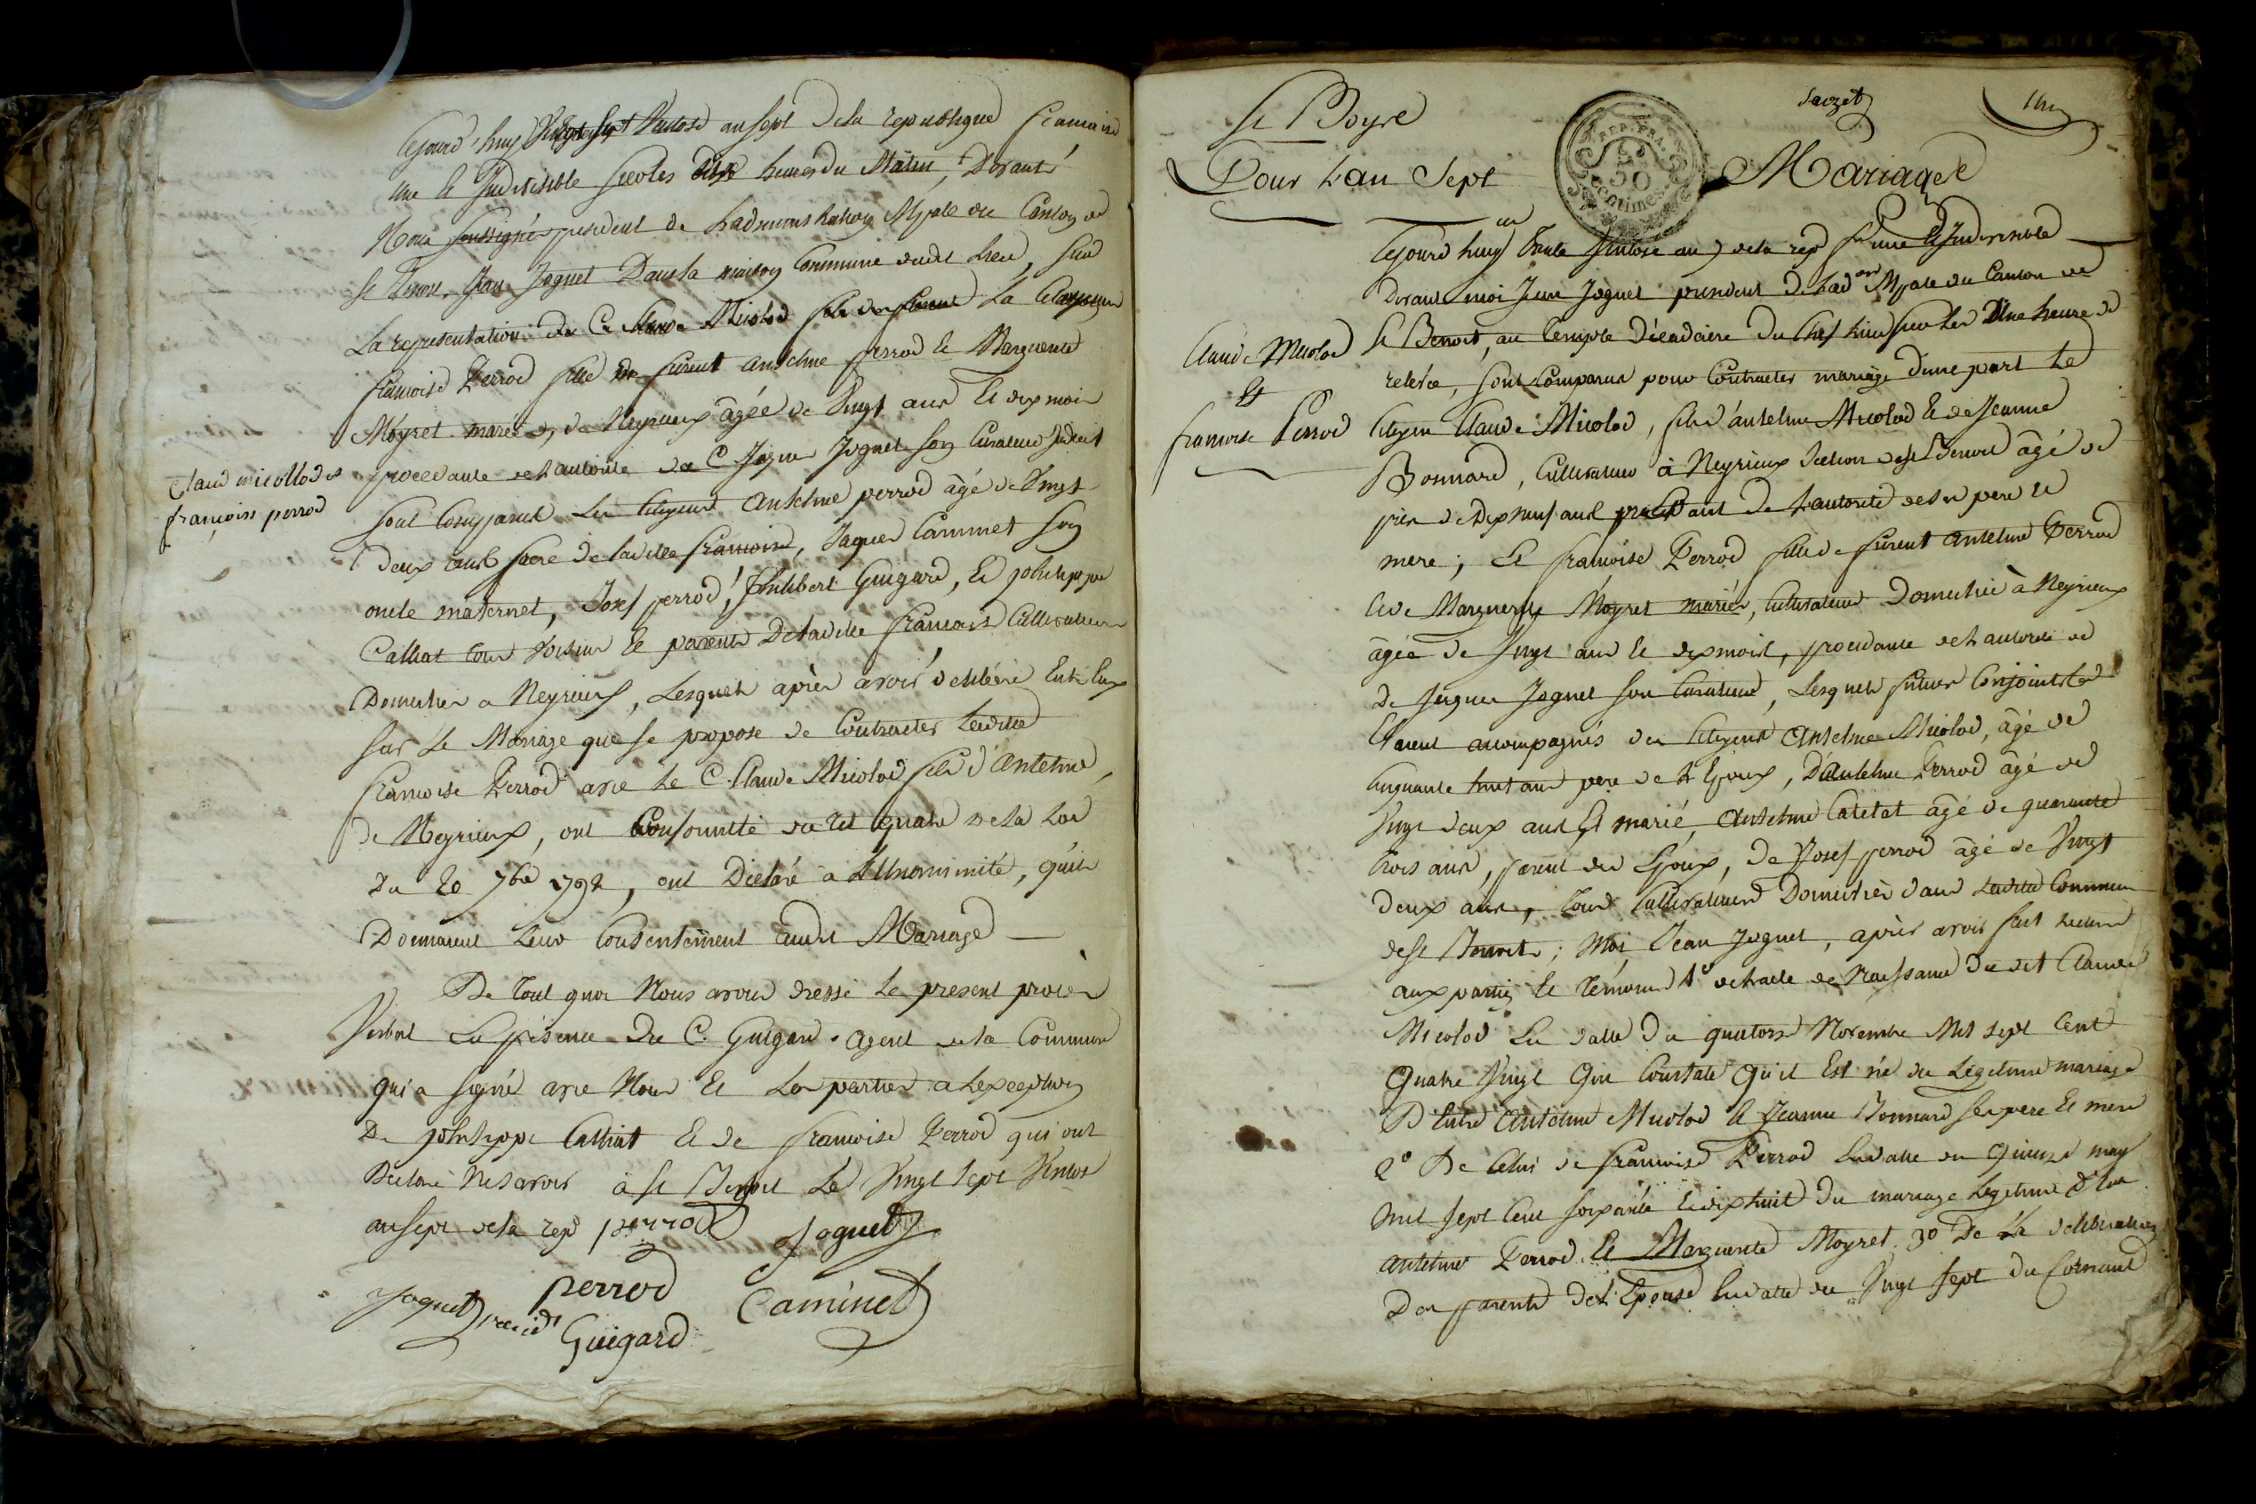 Cejourd'huy vingt sept Ventose an sept de la republique francaise
une et Indivisible sur les dix heures du Matin, Devant
Nous soussigné president de L'administration Mpale du Canton de
St Benoit, Jean Joguet Dans la maison Commune dudit lieu, sur
La representation de C. Claude Micolod fils de La Citoyenne
francoise Perrod fille de furent anthelme perrod et Marguerite
Moyret mariés, de Neyrieux âgée de vingt ans et dix mois
procedante de l'autorité de C. Jaque Joguet son Curateur
Claud micollod et
françoise perrod
sont Comparus les Citoyens Anthelme perrod âgé de vingt
deux ans frere de ladite francoise, Jaques Caminet son
oncle maternel, Josef perrod, Philibert Guigard, et philippe
Calliat tous voisins et parents De ladite francoise Cultivateurs
Domiciliés a Neyrieux, Lesquels après avoir délibéré Entr'eux
sur Le Mariage que se propose de Contracter Ladite
francoise Perrod avec Le C. Claude Micolod fils d'Anthelme,
de Neyrieux, ont
Du 20 7bre 1792, ont Déclaré à L'Unanimité, qu'ils
Donnaient Leur Consentement audit Mariage
De tout quoi Nous avons dressé Le présent procès
Verbal En présence du C. Guigard agent de la Commune
qui a signé avec Nous et Les parties a L'exception
De philippe Calliat et de francoise Perrod qui ont
Déclaré Ne savoir à St Benoit Le vingt sept Ventose
an sept de la rep perrod Joguet
Joguet presidt perrod Caminet
Guigard
St Benoit
Pour L'an Sept
REP. FRA.
50
centimes
Mariages
Cejourd'huy trente Ventose an 7 de la rep fse une et Indivisible
Devant moi Jean Joguet president de L'adon Mpale du Canton de
Claude Micolod
et
francoise Perrod
St Benoit, au temple décadaire du Chef lieu sur les Une heure de
relevée, sont Comparus pour Contracter mariage d'une part Le
Citoyen Claude Micolod, fils d'anthelme Micolod et de Jeanne
Bonnard, Cultivateur à Neyrieux section de St Benoit âgé de
près de dix neuf ans procedant de L'autorité de son pere et
mere; Et francoise Perrod fille de furent anthelme Perrod
et de Marguerite Moyret mariés, Cultivateurs Domicilié à Neyrieux
âgée de vingt ans et dix mois, procedante de L'autorité de
De Jaques Joguet son Curateur, Lesquels futurs Conjoints
Etaient accompagnés des Citoyens Anthelme Micolod, âgé de
Cinquante huit ans pere de L'Epoux, D'Anthelme Perrod âgé de
vingt deux ans et marié, Anthelme Catelat âgé de quarante
trois ans, parent de L'Epoux, de Josef perrod âgé de vingt
deux ans, tous Cultivateurs Domiciliés dans Ladite Commune
de St Benoit; Moi Jean Joguet, après avoir fait Lecture
aux parties et témoins 1° de L'acte de Naissance du dit Claude
Micolod En date du quatorze Novembre Mil sept Cent
Quatre Vingt Qui Constate Qu'il Est né du Légitime mariage
D'Entre Anthelme Micolod et Jeanne Bonnard ses pere et mere
2° De Celui de francoise Perrod En date du quinze may
mil sept Cent soixante et dix huit du mariage Légitime d'Entre
anthelme Perrod et Marguerite Moyret. 3° De La délibération
Des parents de L'Epouse En date du vingt sept du Courant